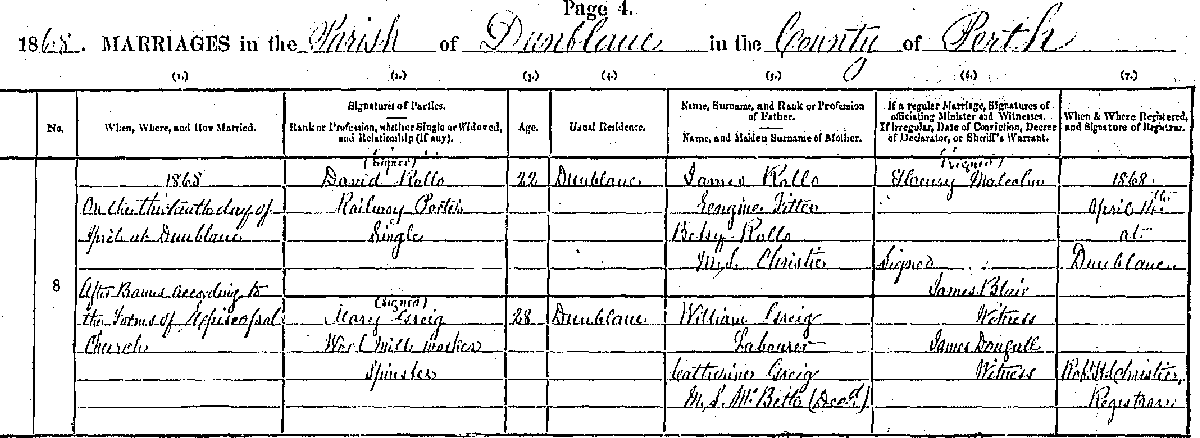 Page 4.
1868. MARRIAGES in the Parish of Dunblane in the County of Perth
(1.) (2.) (3.) (4.) (5.) (6.) (7.)
No.
When, Where, and How Married.
Signatures of Parties.
Rank or Profession, whether Single or Widowed, and Relationship (if any).
Age.
Usual Residence.
Name, Surname, and Rank or Profession of Father.
Name, and Maiden Surname of Mother.
If a regular Marriage, Signatures of officiating Minister and Witnesses.
If Irregular, Date of Conviction, Decree of Declarator, or Sheriff's Warrant.
When & Where Registered, and Signature of Registrar.
8
1868
On the thirteenth day of
April at Dunblane
After Banns according to
the Forms of Episcopal
Church
(Signed)
David Rollo
Railway Porter
Single
22
Dunblane
James Rollo
Engine Fitter
Betsy Rollo
M.S. Christie
(Signed)
Mary Greig
Wool Mill Worker
Spinster
28
Dunblane
William Greig
Labourer
Catherine Greig
M.S. McBeth (Decd.)
(Signed)
Henry Malcolm
Signed
James Blair
Witness
James Dougall
Witness
1868
April 14th
at
Dunblane
Christie,
Registrar